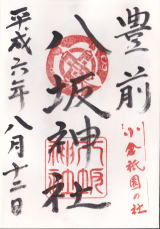 豊前
小倉祇園の社
八坂神社
平成六年八月十二日